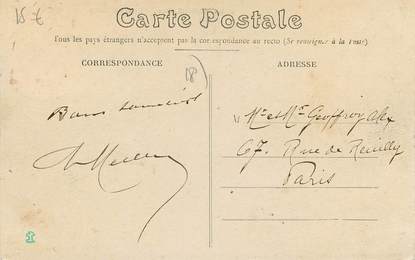 15 €
Carte Postale
Tous les pays étrangers n'acceptent pas la correspondance au recto (Se renseigner à la Poste)
CORRESPONDANCE
ADRESSE
18
Bons
Mr et Mme Geoffroy Alex
67. Rue de Reuilly
Paris